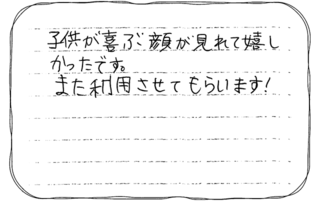 子供が喜ぶ顔が見れて嬉し
かったです。
また利用させてもらいます!